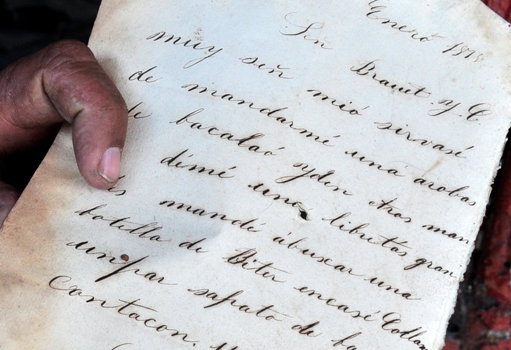 Enero 1878
Sen Braut. y C
muy señ mió sirvasé
de mandarmé una arobas
de bacalaó y den otros man
dimé una libritas gran
mande ábuscar una
botella de Biter encasi Collan
un par sapato de
Contacon.